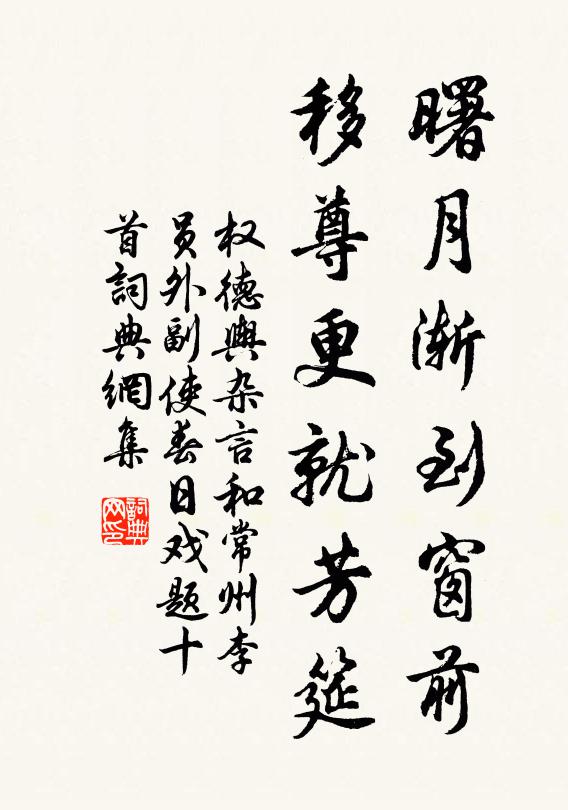 曙月渐到窗前
移尊更就芳筵
权德輿杂言和常州李
員外副使春日戏题十
首詞典網集
詞典
网印